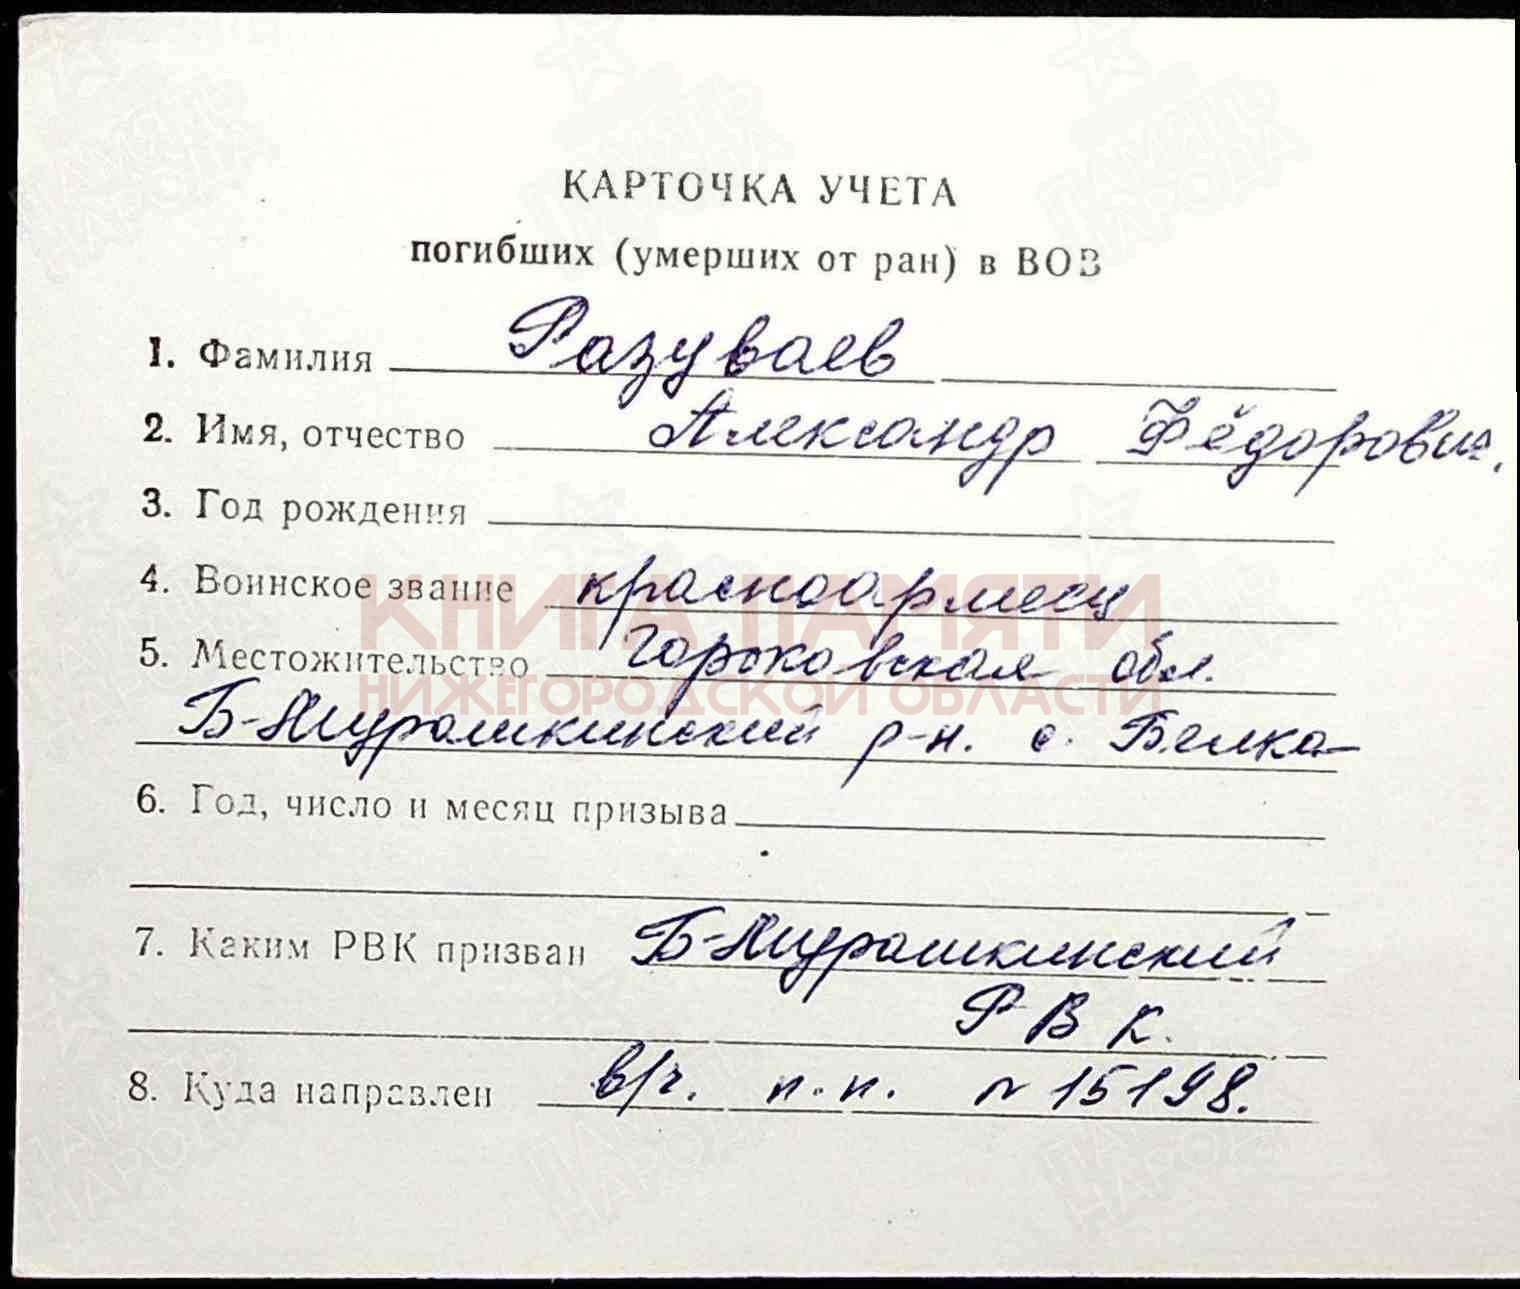 КАРТОЧКА УЧЕТА
погибших (умерших от ран) в ВОВ
1. Фамилия Разуваев
2. Имя, отчество Александр Фёдорович.
3. Год рождения
4. Воинское звание красноармеец
5. Местожительство Горьковская обл.
Б-Мурашкинский р-н. с. Белка
6. Год, число и месяц призыва
7. Каким РВК призван Б-Мурашкинский
РВК.
8. Куда направлен в/ч. п.п. № 15198.
КНИГА ПАМЯТИ
НИЖЕГОРОДСКОЙ ОБЛАСТИ
ПАМЯТЬ
НАРОДА